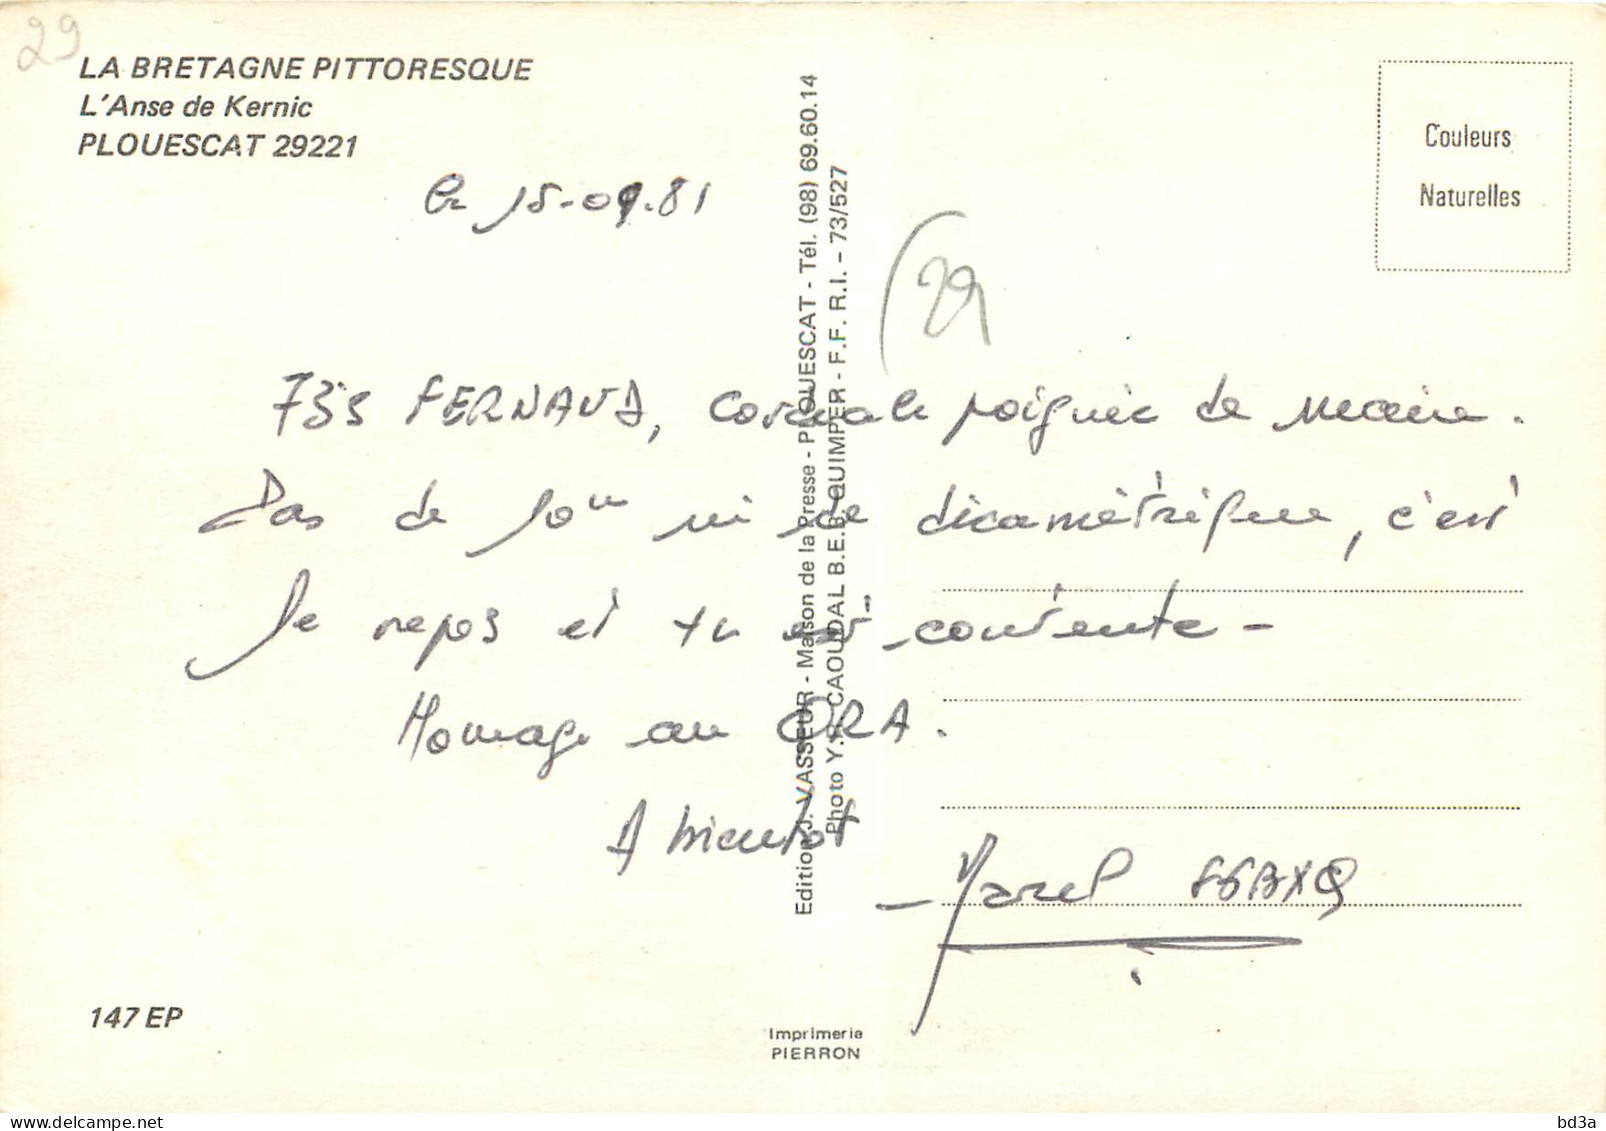 29
LA BRETAGNE PITTORESQUE
L'Anse de Kernic
PLOUESCAT 29221
Couleurs
Naturelles
Le 15-09.81
29
73s FERNAND, Cordiale poignée de main.
Pas de 10m ni de décamétrique, c'est
le repos et tu es contente -
Homage au ORA.
A bientot
Marcel
Edition J. VASSEUR - Maison de la Presse - PLOUESCAT - Tél. (98) 69.60.14
Photo Y.R. CAOUDAL B.E.B. QUIMPER - F.F. R.I. - 73/527
147 EP
Imprimerie
PIERRON
delcampe.net
bd3a